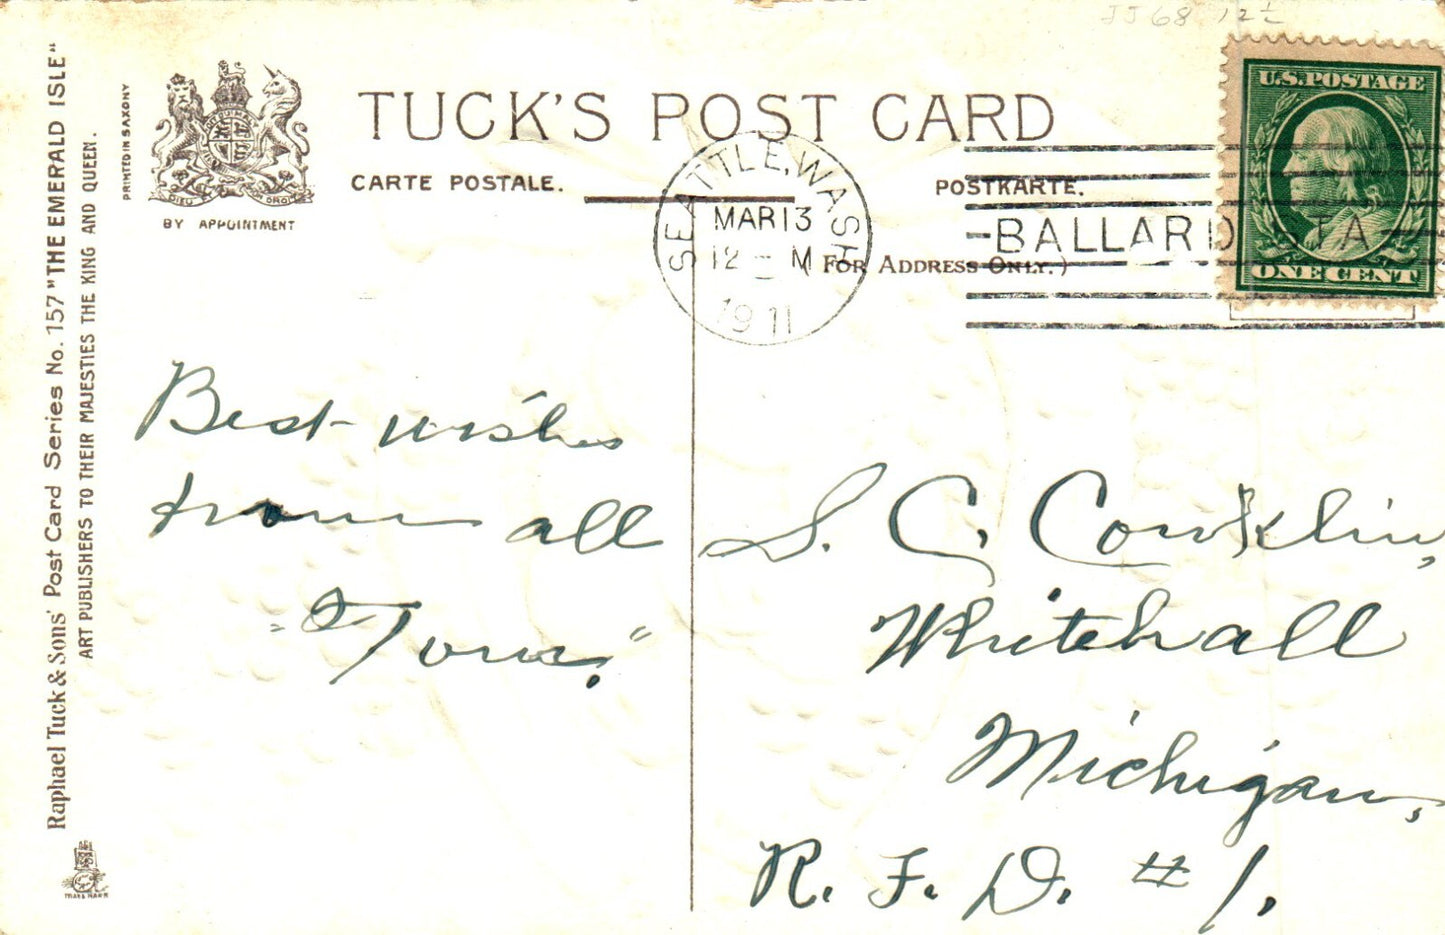 JJ68 12½
Raphael Tuck & Sons' Post Card Series No. 157 "THE EMERALD ISLE"
ART PUBLISHERS TO THEIR MAJESTIES THE KING AND QUEEN.
PRINTED IN SAXONY
BY APPOINTMENT
TUCK'S POST CARD
CARTE POSTALE.
POSTKARTE.
(FOR ADDRESS ONLY.)
SEATTLE, WASH
MAR 13
12 M
1911
BALLARD STA
U.S. POSTAGE
ONE CENT
Best wishes
from all
S. C. Conklin,
Whitehall
Michigan,
R. F. D. # 1.
TRADE MARK